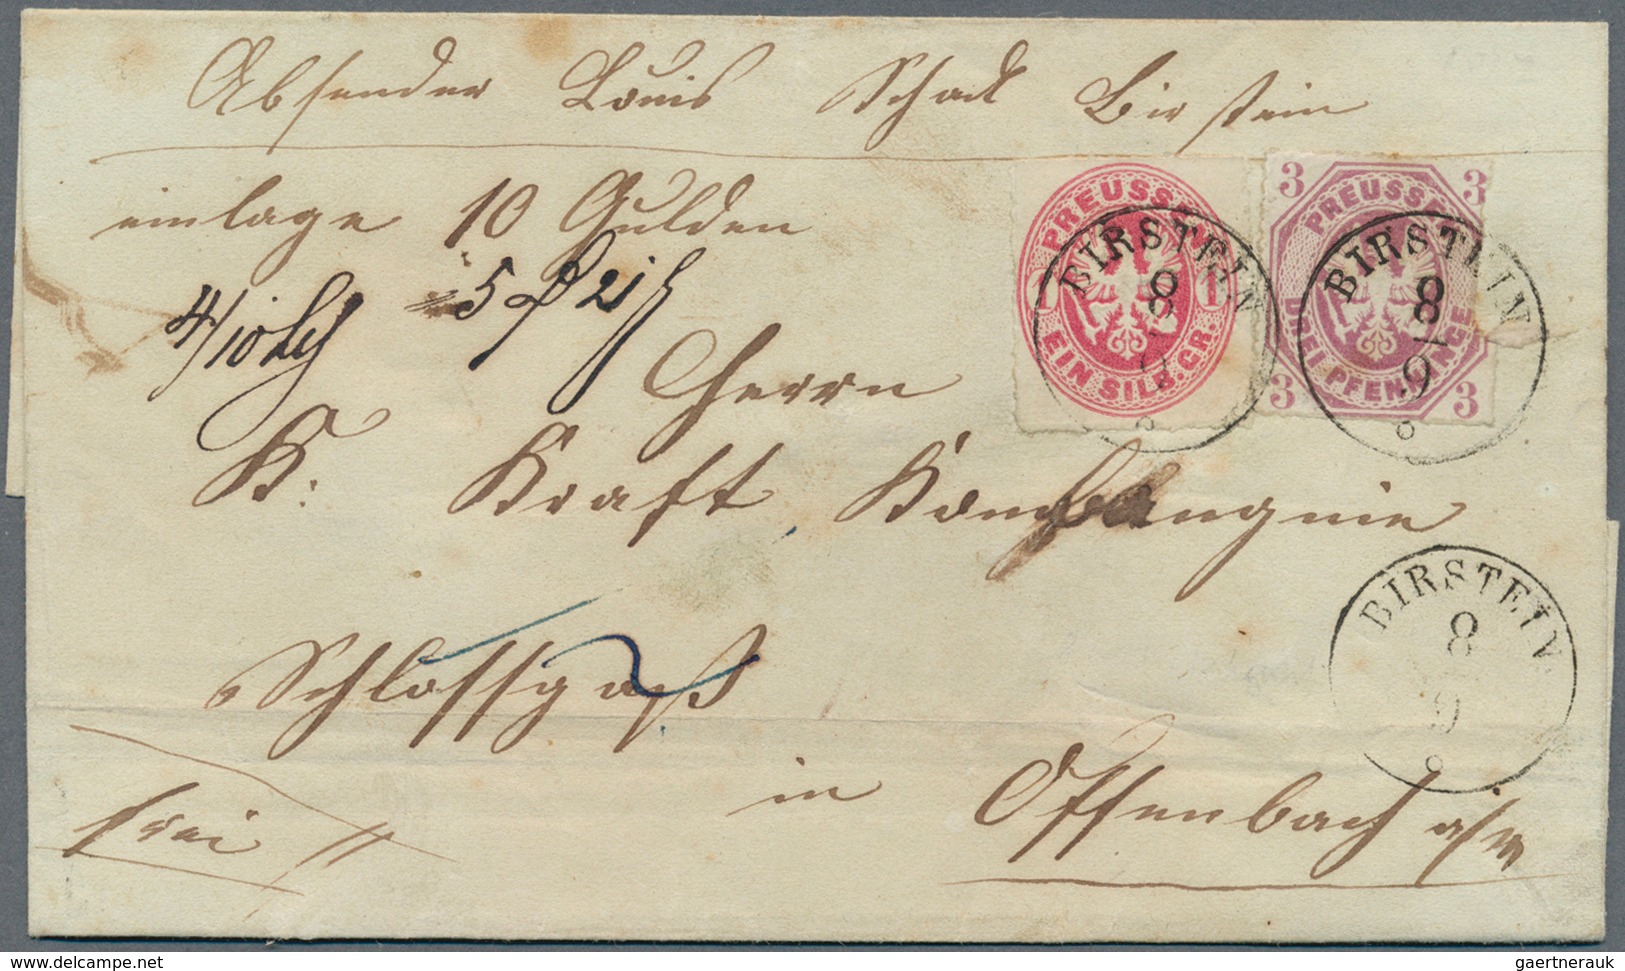 Absender Louis Schad Birstein
einlage 10 Gulden
4/10
Herrn
K. Kraft Kompangnie
Schlossgass
in Offenbach a/m
frei
PREUSSEN
1 1
EIN SILB. GR.
BIRSTEIN
8
9
3 3
PREUSSEN
DREI PFENNINGE
3 3
BIRSTEIN
8
9
BIRSTEIN
8
9
www.delcampe.net
gaertnerauk